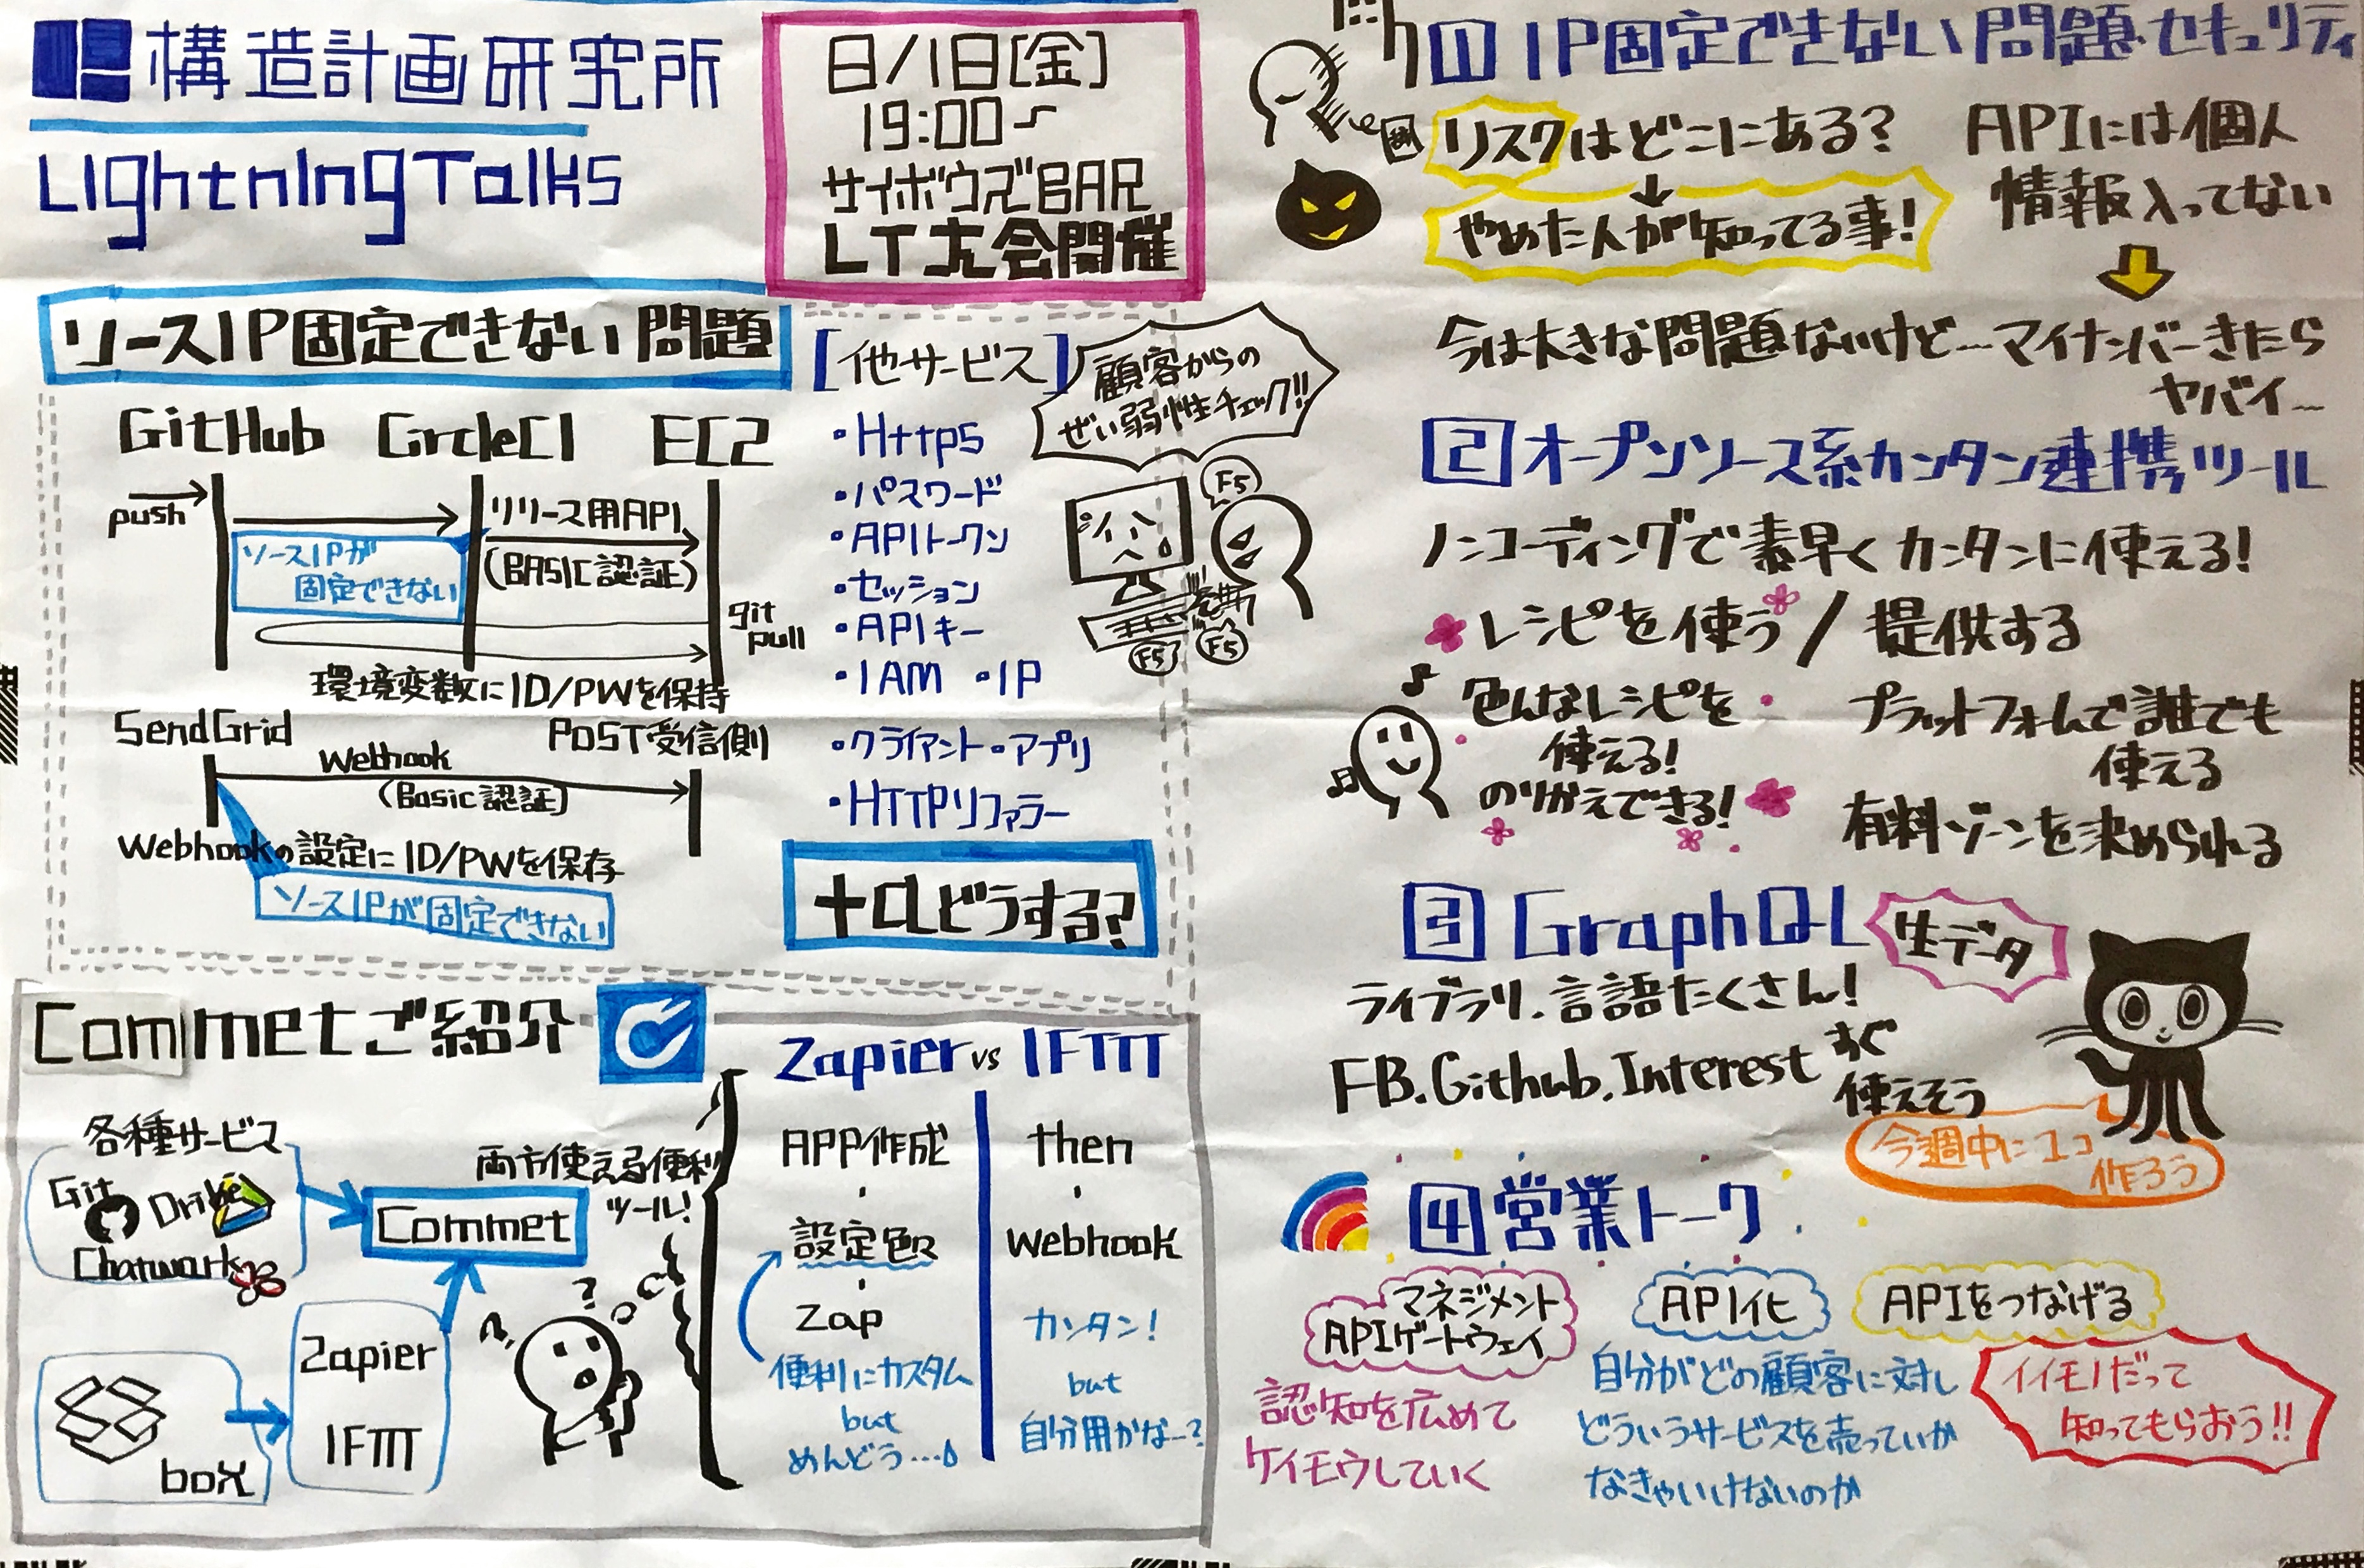 構造計画研究所
LightningTalks
8/1日[金]
19:00〜
サイボウズBAR
LT大会開催
ソースIP固定できない問題
GitHub CircleCI EC2
push
リリース用API
(BASIC認証)
ソースIPが
固定できない
git
pull
環境変数にID/PWを保持
SendGrid
POST受信側
Webhook
(Basic認証)
Webhookの設定にID/PWを保存
ソースIPが固定できない
[他サービス]
・Https
・パスワード
・APIトークン
・セッション
・APIキー
・IAM ・IP
・クライアント・アプリ
・HTTPリファラー
顧客からの
ぜい弱性チェック!!
F5
F5
F5
+αどうする?
Commetご紹介
各種サービス
Git
Drive
Chatwork
Commet
両方使える便利
ツール!
box
Zapier
IFTTT
?
Zapier vs IFTTT
APP作成
設定色々
Zap
便利にカスタム
but
めんどう…
then
Webhook
カンタン!
but
自分用かなー?
1 IP固定できない問題・セキュリティ
リスクはどこにある?
↓
やめた人が知ってる事!
APIには個人
情報入ってない
今は大きな問題ないけど…マイナンバーきたら
ヤバイ…
2 オープンソース系カンタン連携ツール
ノンコーディングで素早くカンタンに使える!
レシピを使う/提供する
色んなレシピを
使える!
のりかえできる!
プラットフォームで誰でも
使える
有料ゾーンを決められる
3 GraphQL
生データ
ライブラリ、言語たくさん!
FB.Github.Interest すぐ
使えそう
今週中に1コ
作ろう
4 営業トーク
マネジメント
APIゲートウェイ
認知を広めて
ケイモウしていく
API化
自分がどの顧客に対し
どういうサービスを売っていか
なきゃいけないのか
APIをつなげる
イイモノだって
知ってもらおう!!